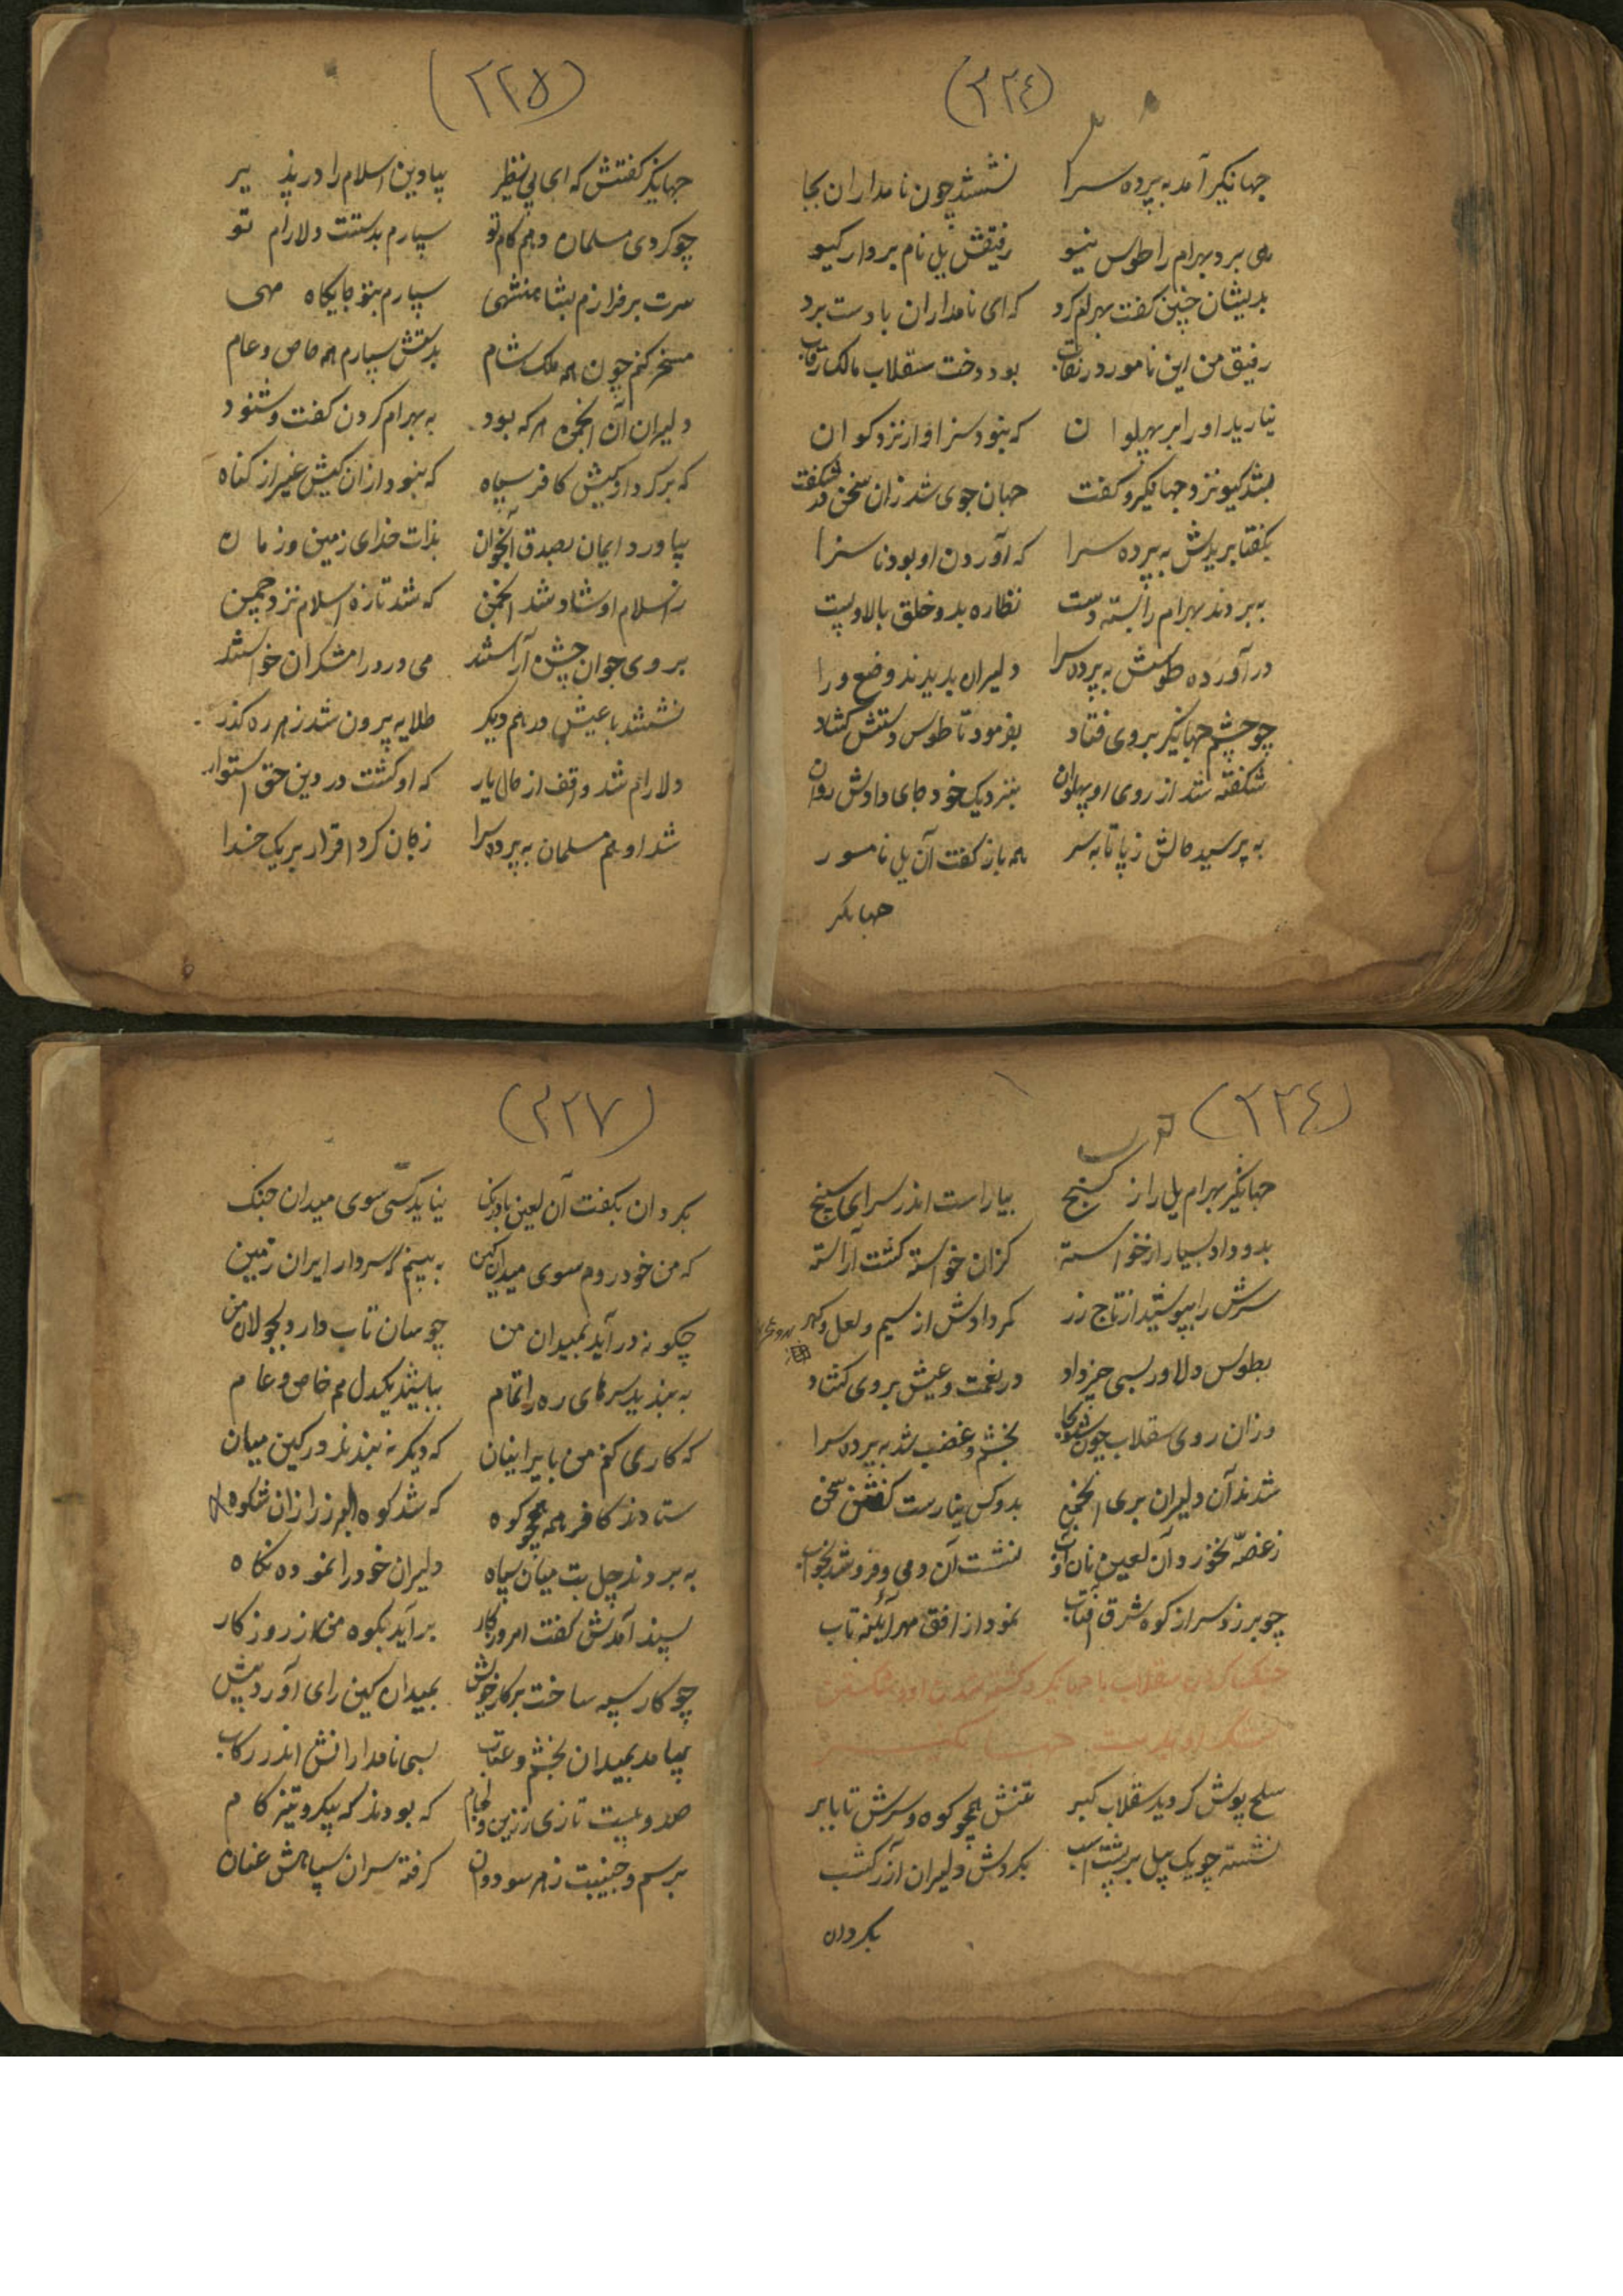 (۲۲٤)
جهانکیر آمد به پرده سرا نشستند چون نامداران بجا
همی برد بهرام را طوس نیو رفیقش یل نام بردار کیو
بدیشان چنین کفت بهرام کرد که ای نامداران با دست برد
رفیق من این نامور در نقاب بود دخت سقلاب مالک رقاب
نیارید او را بر پهلوان که نبود سزاوار نزد کوان
بشد کیو نزد جهانکیر و کفت جهان جوی شد زان سخن در شکفت
بکفتا بریدش به پرده سرا که آوردن او بود ناسزا
به بردند بهرام را بسته دست نظاره بدو خلق بالا و پست
درآورد طوسش به پرده سرا دلیران بدیدند وضع ورا
چو چشم جهانکیر بر وی فتاد بفرمود تا طوس دستش کشاد
شکفته شد از روی او پهلوان بنزدیک خود جای دادش روان
به پرسید حالش ز پا تا به سر همه باز کفت آن یل نامور
جهانکیر
(۲۲۵)
جهانکیر کفتش که ای بی نظیر بیا و دین اسلام را در پذیر
چو کردی مسلمان دهم کام تو سپارم بدستت دلارام تو
سرت برفرازم بشاهنشهی سپارم بتو جایکاه مهی
مسخر کنم چون همه ملک شام بدستش سپارم همه خاص و عام
دلیران آن انجمن هر که بود به بهرام کردن کفت و شنود
که برکرد او کیش کافر سپاه که نبود از ان کیش غیر از کناه
بیاورد ایمان بصدق آنجوان بذات خدای زمین و زمان
ز اسلام او شاد شد انجمن که شد تازه اسلام نزد چمن
بروی جوان جشن آراستند می و رود و رامشکران خواستند
نشستند با عیش در هم دیکر طلایه بیرون شد ز هر ره کذر
دلارام شد واقف از حال یار که او کشت در دین حق استوار
شد او هم مسلمان به پرده سرا زبان کرد اقرار بر یک خدا
(۲۲٤)
جهانکیر بهرام یل را ز کنج بیاراست اندر سرای سپنج
بدو داد بسیار از خواسته کزان خواسته کشت آراسته
سرش را بپوشید از تاج زر کمر دادش از سیم و لعل و کهر
بطوس دلاور بسی چیز داد در نعمت و عیش بر وی کشاد
وزان روی سقلاب چون بخشم و غضب شد به پرده سرا
شدند آن دلیران بری انجمن بدو کس نیارست کفتن سخن
ز غصّه نخورد آن لعین نان و آب ننشست آن دمی و فرو شد بخواب
چو برزد سر از کوه شرق آفتاب نمود از افق مهر آئینه تاب
جنک کردن سقلاب با جهانکیر و کشته شدن او
سلح پوش کردید سقلاب کبر تنش همچو کوه و سرش تا بابر
نشسته چو یک پیل بر پشت اسب بکردش دلیران آذرکشب
بکردان
(۲۲۷)
بکردان بکفت آن لعین نیاید کسی سوی میدان جنک
که من خود روم سوی میدان کین به بینم که سردار ایران زمین
چکونه درآید بمیدان من چو سان تاب دارد بجولان من
به بندید سرهای ره را تمام بباشید یکدل همه خاص و عام
که کاری کنم من بایرانیان که دیکر نه بندند در کین میان
ستادند کافر همه همچو کوه که شد کوه البرز از ان شکوه
به بردند چل بت میان سپاه دلیران خود را نموده نکاه
پسند آمدش کفت امروز کار برآید بکوه من از روزکار
چو کار سپه ساخت بر کار خویش بمیدان کین رای آورد پیش
بیامد بمیدان بخشم و عتاب بسی نامدارانش اندر رکاب
صد و بیست تازی زرین لجام که بودند که پیکر و تیز کام
برسم جنیبت ز هر سو دوان کرفته سران سپاهش عنان